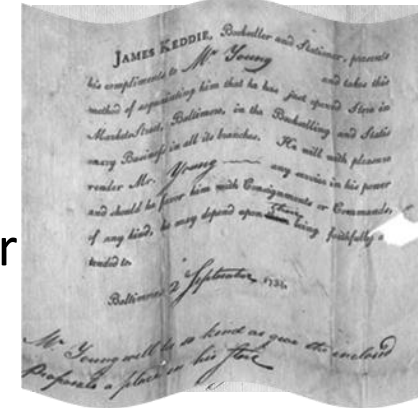 r
JAMES KEDDIE, Bookseller and Stationer, presents
his compliments to Mr Young and takes this
method of acquainting him that he has just opened Store in
Market-Street, Baltimore, in the Bookselling and Statio
nary Business in all its branches. He will with pleasure
render Mr. Young any service in his power
and should he favor him with Consignments or Commands,
of any kind, he may depend upon their being faithfully a
tended to.
Baltimore 2 September
Mr Young will be so kind as give the inclosed
Proposals a place in his Store